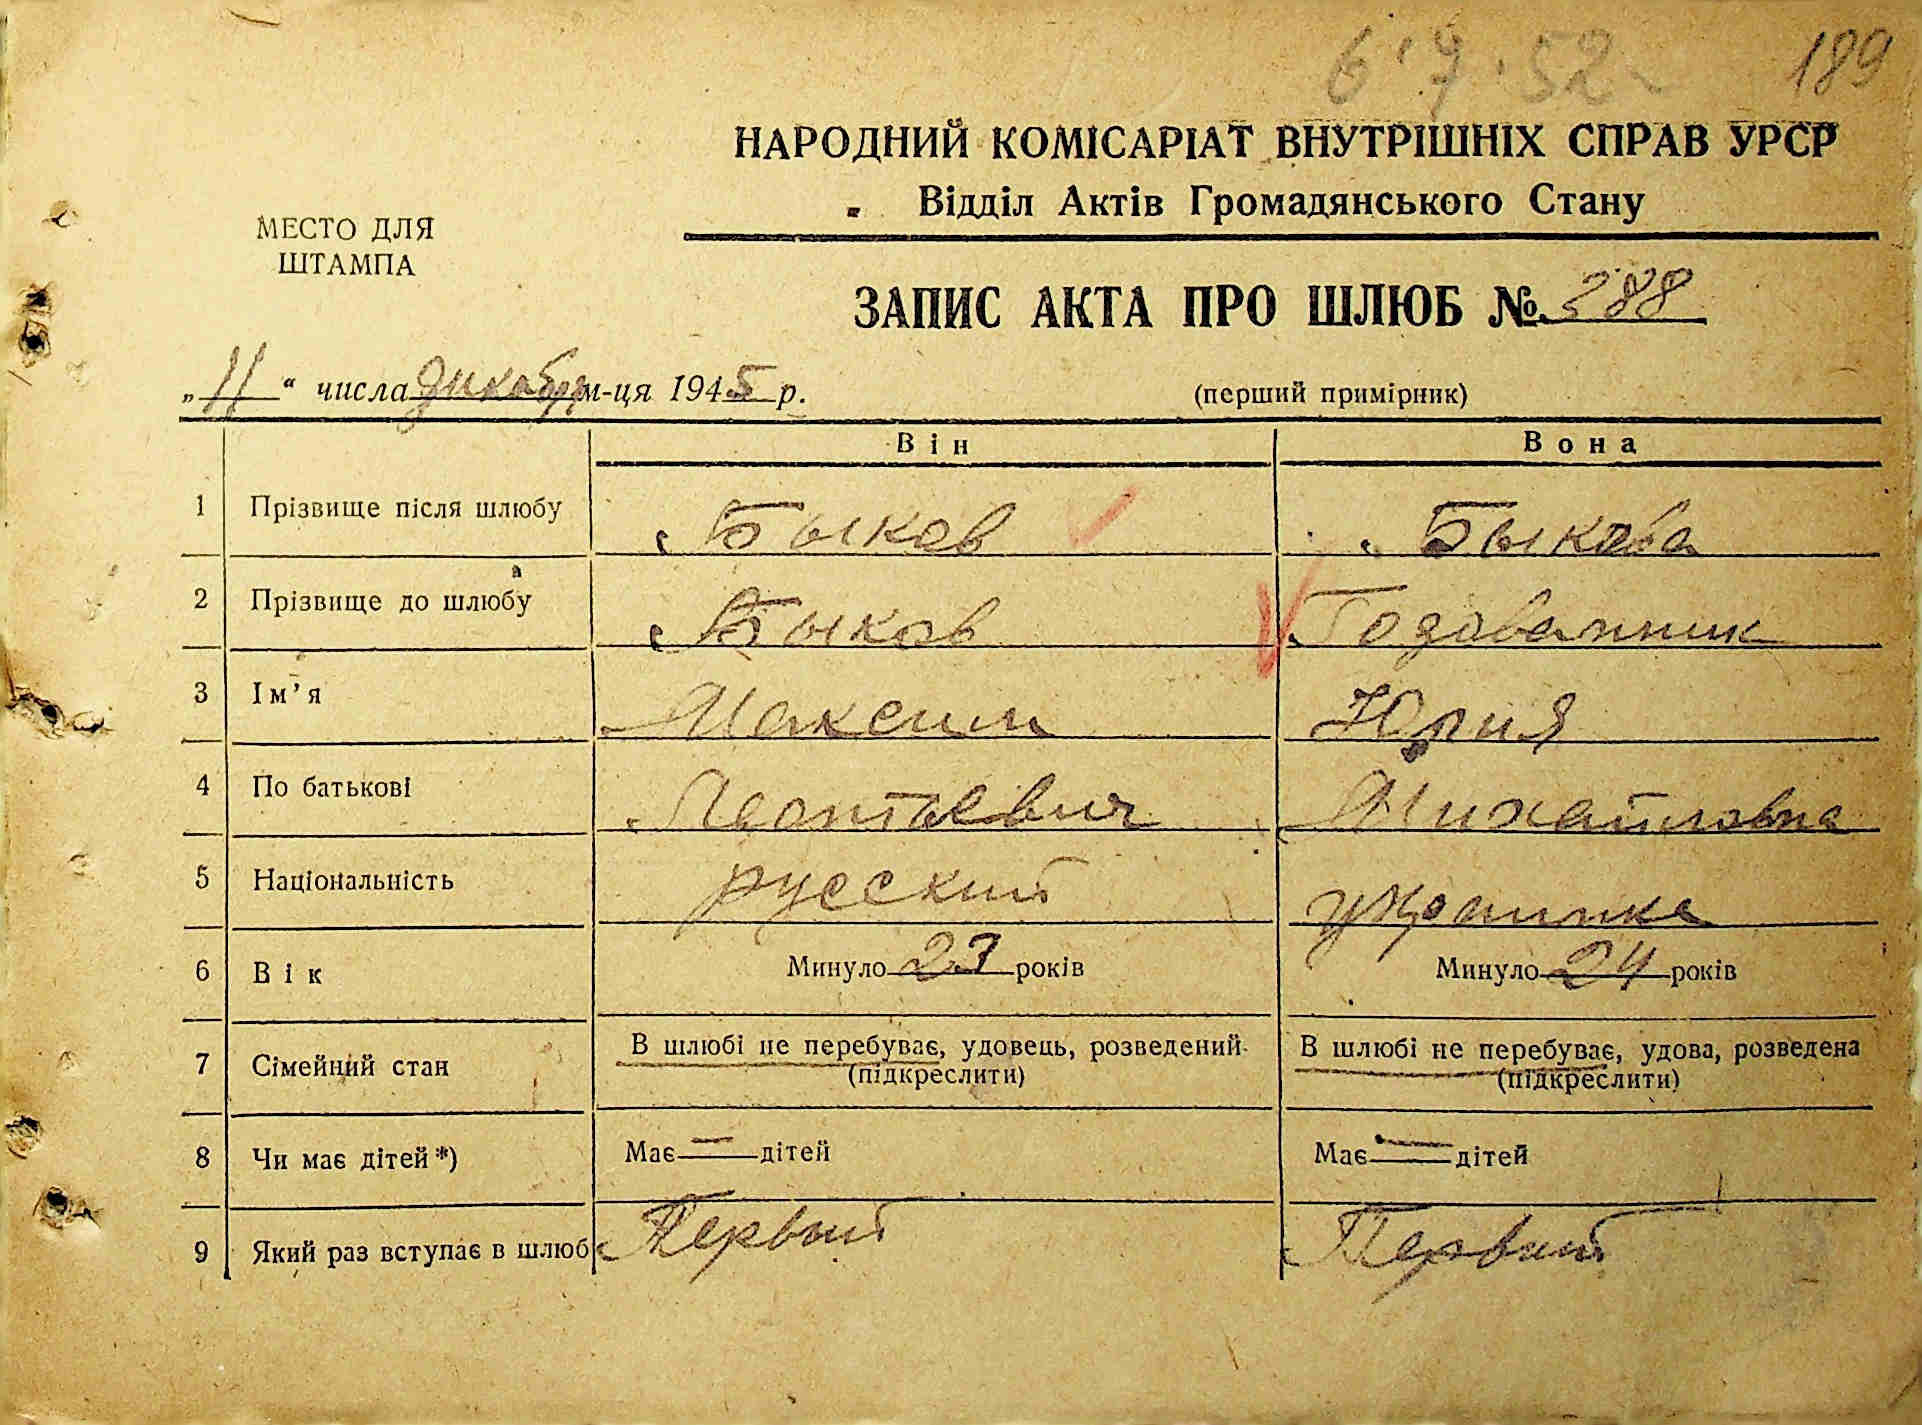 6.7.52
189
НАРОДНИЙ КОМІСАРІАТ ВНУТРІШНІХ СПРАВ УРСР
Відділ Актів Громадянського Стану
МЕСТО ДЛЯ
ШТАМПА
ЗАПИС АКТА ПРО ШЛЮБ № 288
„11“ числа декабря м-ця 1945 р.
(перший примірник)
Він Вона
1 Прізвище після шлюбу Быков Быкова
2 Прізвище до шлюбу Быков Годованник
3 Ім’я Максим Юрия
4 По батькові Леонтьевич Михайловна
5 Національність русский украинка
6 Вік Минуло 23 років Минуло 24 років
7 Сімейний стан В шлюбі не перебуває, удовець, розведений В шлюбі не перебуває, удова, розведена
(підкреслити) (підкреслити)
8 Чи має дітей*) Має — дітей Має — дітей
9 Який раз вступає в шлюб Первый Первый